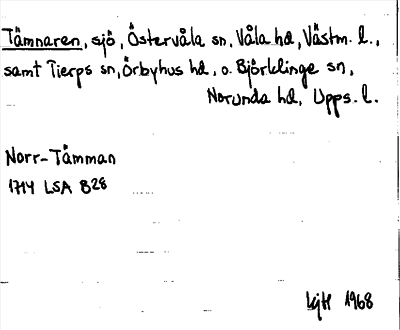 Tämnaren, sjö, Östervåla sn, Våla hd, Västm. l.,
samt Tierps sn, Örbyhus hd, o. Björklinge sn,
Norunda hd, Upps. l.
Norr-Tämman
1714 LSA B28
1968